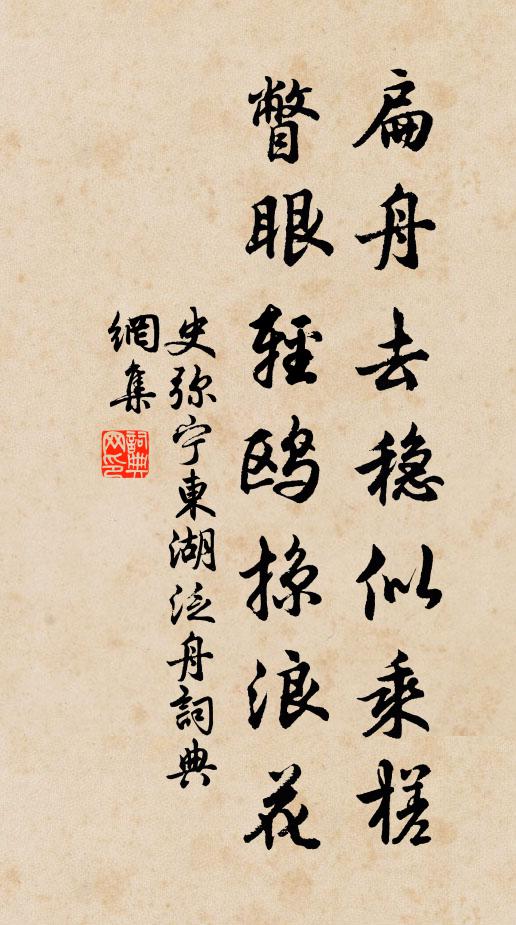 扁舟去穏似乘槎
瞥眼輕鸥掠浪花
史弥宁東湖泛舟詞典
網集
詞典網印